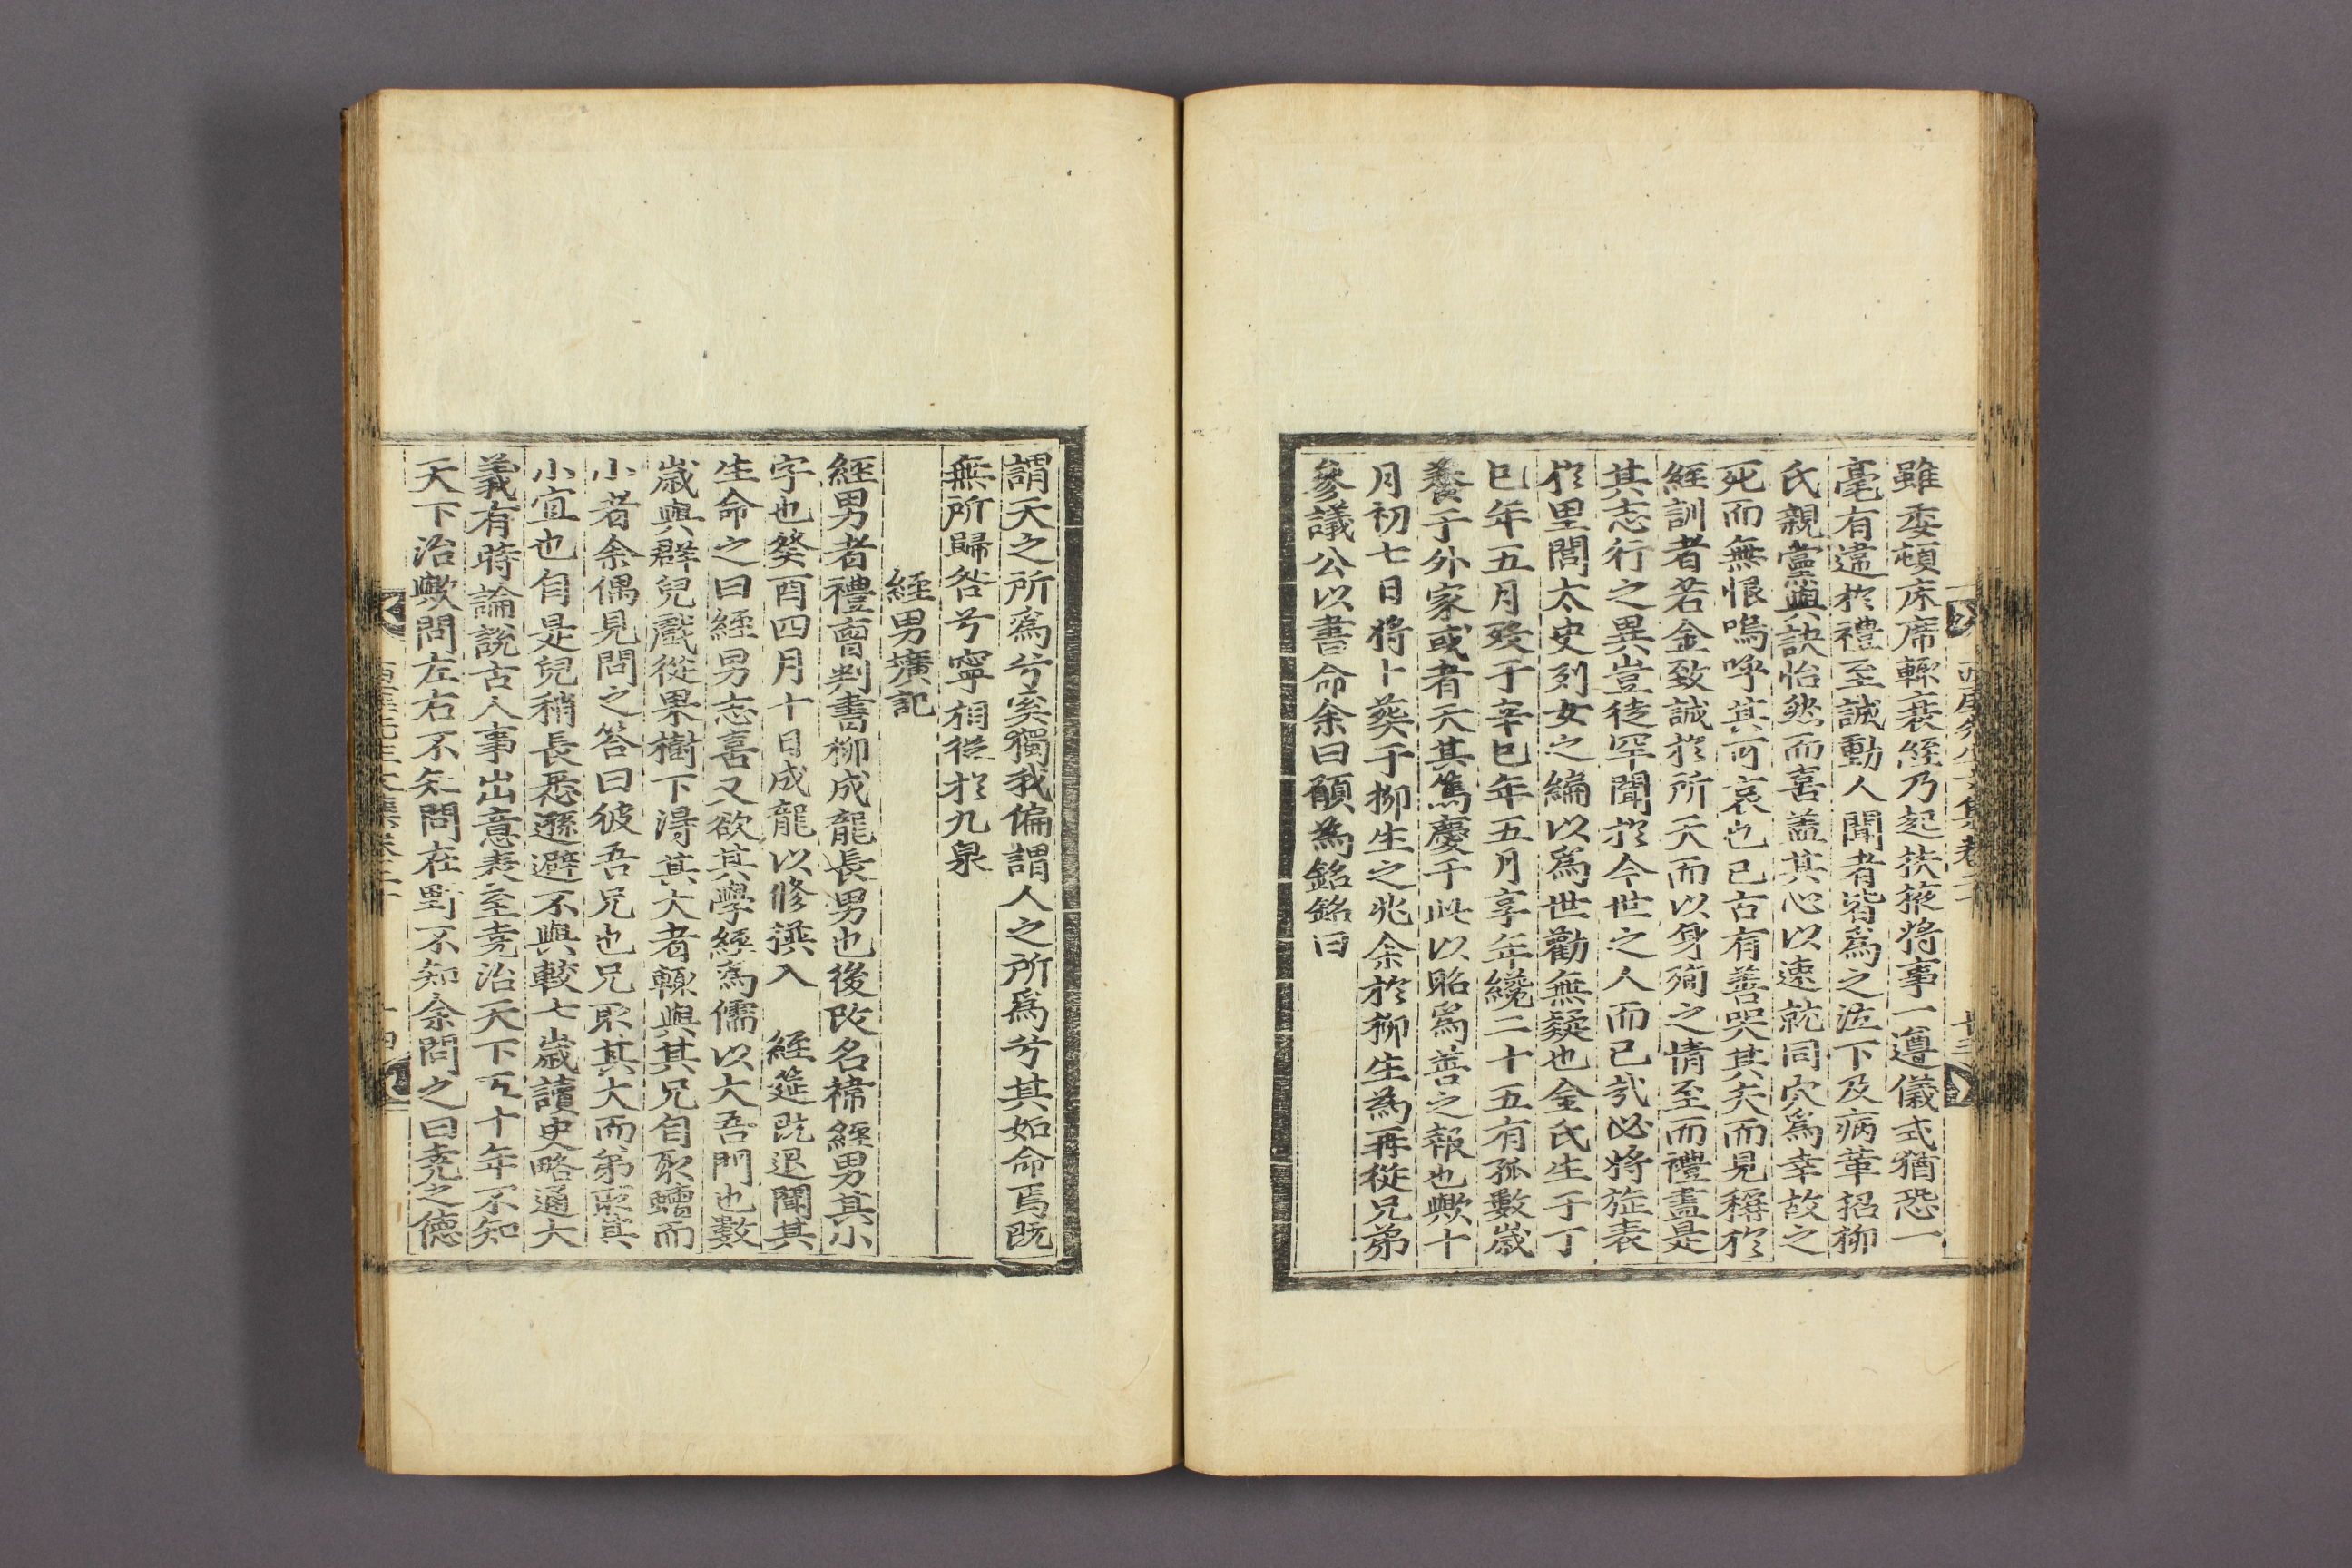 雖委頓床席輒衰絰乃起扶掖將事一遵儀式猶恐一
毫有違於禮至誠動人聞者皆爲之泣下及病革招柳
氏親黨與訣怡然而喜盖其心以速就同穴爲幸故之
死而無恨嗚呼其可哀也已古有善哭其夫而見稱於
經訓者若金致誠於所天而以身殉之情至而禮盡是
其志行之異豈徒罕聞於今世之人而已㢤必將旌表
於里閭太史列女之編以爲世勸無疑也金氏生于丁
巳年五月歿于辛巳年五月享年纔二十五有孤數歲
養于外家或者天其篤慶于此以貽爲善之報也歟十
月初七日將卜葬于柳生之兆余於柳生爲再從兄弟
叅議公以書命余曰願爲銘銘曰
謂天之所爲兮奚獨我偏謂人之所爲兮其如命焉既
無所歸咎兮寧相從於九泉
經男壙記
經男者禮曹判書柳成龍長男也後改名褘經男其小
字也癸酉四月十日成龍以修撰入 經筵既退聞其
生命之曰經男志喜又欲其學經爲儒以大吾門也數
歲與群兒戲從果樹下得其大者輒與其兄自取蟾而
小者余偶見問之答曰彼吾兄也兄取其大而弟取其
小宜也自是兒稍長悉遜避不與較七歲讀史略通大
義有時論說古人事出意表至堯治天下五十年不知
天下治歟問左右不知問在野不知余問之曰堯之德
西厓先生文集卷二十 十四